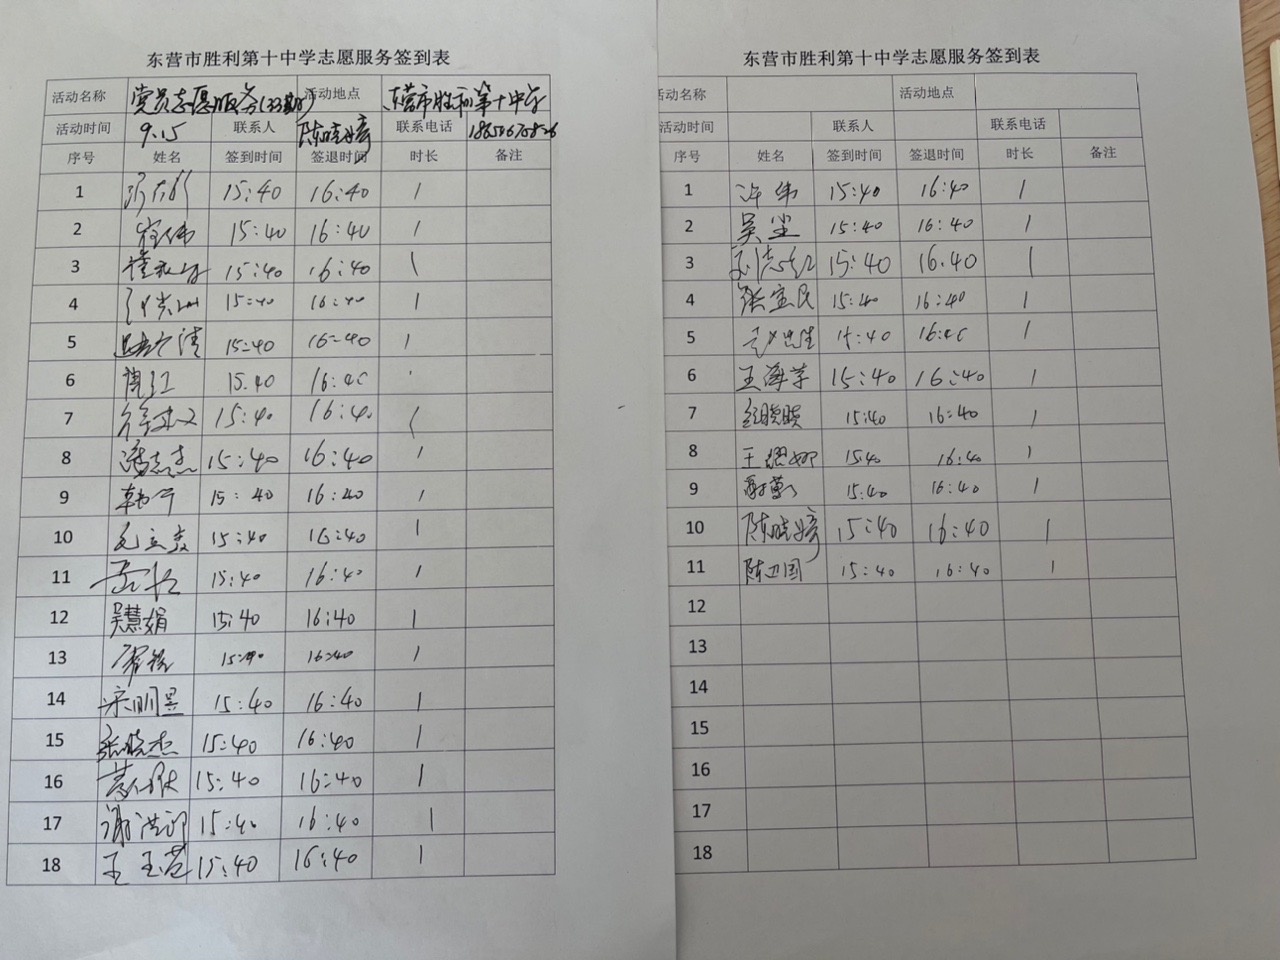 东营市胜利第十中学志愿服务签到表
活动名称 党员志愿服务(33期) 活动地点 东营市胜利第十中学
活动时间 9.15 联系人 陈晓婷 联系电话
序号 姓名 签到时间 签退时间 时长 备注
1 15:40 16:40 1
2 崔伟 15:40 16:40 1
3 15:40 16:40 1
4 15:40 16:40 1
5 15:40 16:40 1
6 15.40 16:40
7 15:40 16:40 1
8 潘志杰 15:40 16:40 1
9 15:40 16:40 1
10 15:40 16:40 1
11 15:40 16:40 1
12 吴慧娟 15:40 16:40 1
13 15:40 16:40 1
14 宋明昱 15:40 16:40 1
15 张晓杰 15:40 16:40 1
16 15:40 16:40 1
17 谢洪 15:40 16:40 1
18 王玉芝 15:40 16:40 1
东营市胜利第十中学志愿服务签到表
活动名称 活动地点
活动时间 联系人 联系电话
序号 姓名 签到时间 签退时间 时长 备注
1 许伟 15:40 16:40 1
2 吴尘 15:40 16:40 1
3 刘志红 15:40 16.40 1
4 张宝民 15:40 16:40 1
5 15:40 16:40 1
6 王海苹 15:40 16:40 1
7 晓 15:40 16:40 1
8 王 娜 15:40 16:40 1
9 15:40 16:40 1
10 陈晓婷 15:40 16:40 1
11 陈卫国 15:40 16:40 1
12
13
14
15
16
17
18